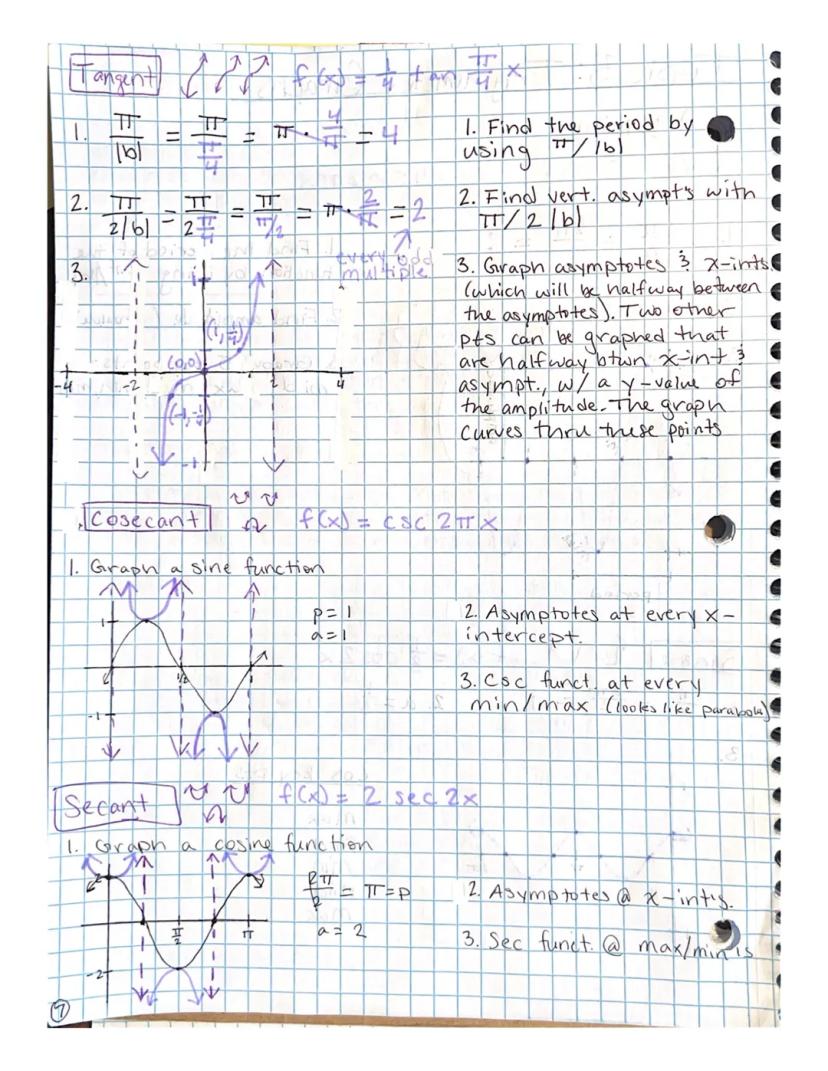 Tangent f(x) = 1/4 tan π/4 x
1. π/|b| = π/(π/4) = π · 4/π = 4
1. Find the period by
using π/|b|
2. π/2|b| = π/(2 π/4) = π/(π/2) = π · 2/π = 2
every odd
multiple
2. Find vert. asympt's with
π/2|b|
3.
1
(1, 1/4)
(0,0)
-4 -2 2 4
(-1, -1/4)
-1
3. Graph asymptotes & x-ints
(which will be halfway between
the asymptotes). Two other
pts can be graphed that
are halfway btwn x-int &
asympt., w/ a y-value of
the amplitude. The graph
curves thru these points
Cosecant f(x) = csc 2πx
1. Graph a sine function
1
1/2
-1
p = 1
a = 1
2. Asymptotes at every x-
intercept.
3. Csc funct. at every
min/max (looks like parabola)
Secant f(x) = 2 sec 2x
1. Graph a cosine function
2
π/2 π
-2
2π/2 = π = p
a = 2
2. Asymptotes @ x-int's.
3. Sec funct. @ max/min's
7